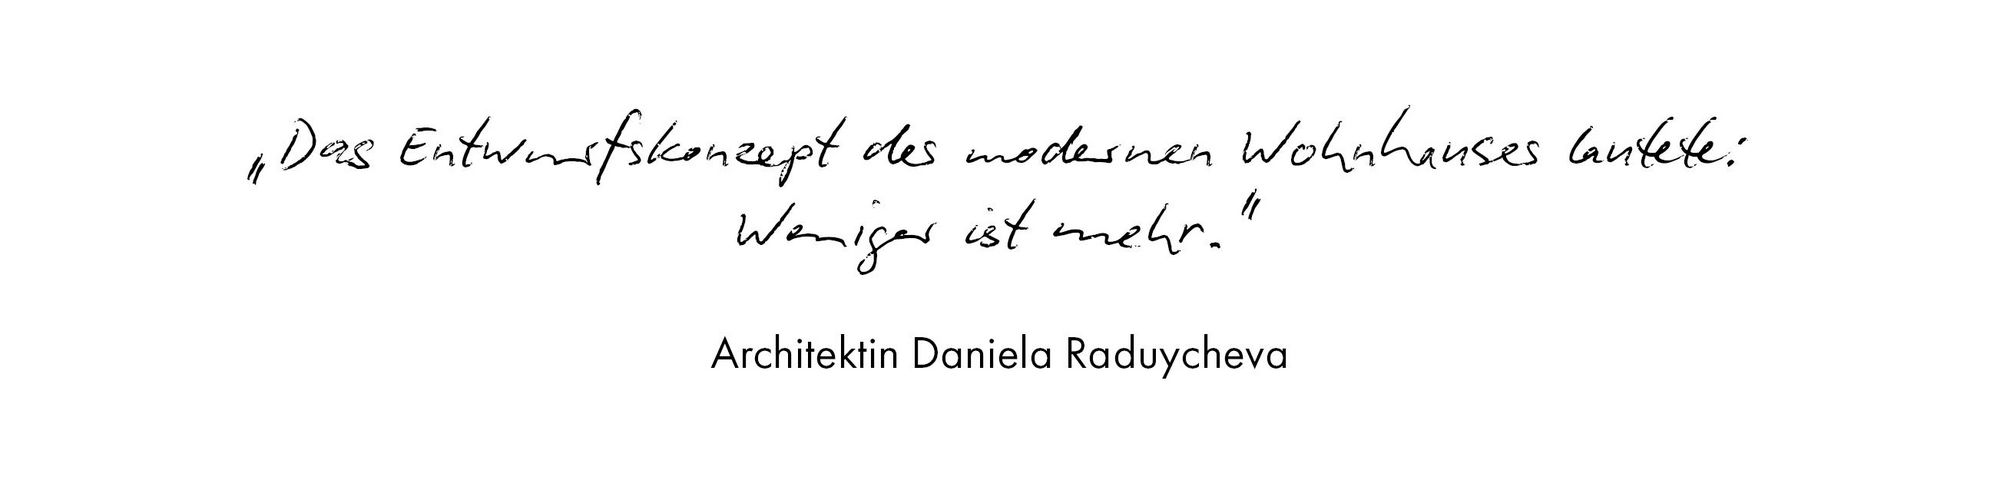 „Das Entwurfskonzept des modernen Wohnhauses lautete:
Weniger ist mehr."
Architektin Daniela Raduycheva